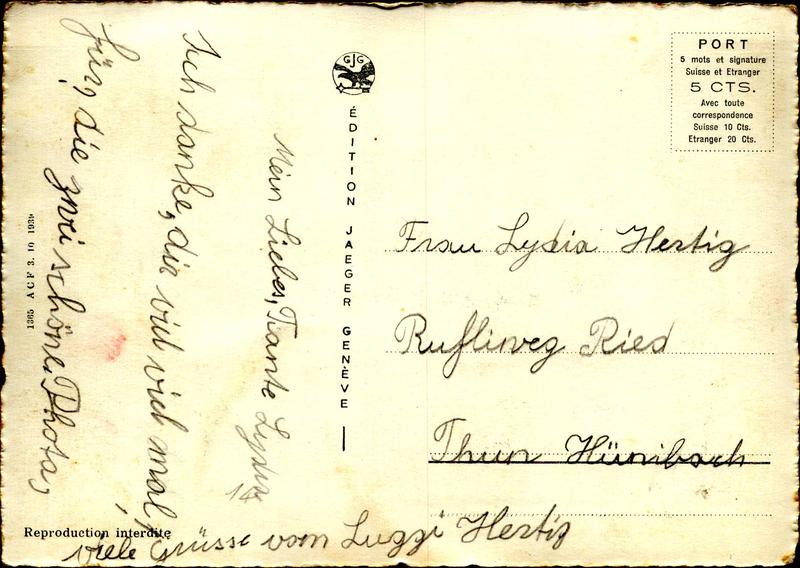 Mein Liebes, Tante Lydia
Ich danke, dir viel viel mal,
für, die zwei schöne Photos,
viele Grüsse vom Luggi Hertig
GJG
ÉDITION JAEGER GENÈVE
1365 ACF 3. 10 1939
Reproduction interdite
PORT
5 mots et signature
Suisse et Etranger
5 CTS.
Avec toute
correspondence
Suisse 10 Cts.
Etranger 20 Cts.
Frau Lydia Hertig
Rufliweg Ried
Thun Hünibach